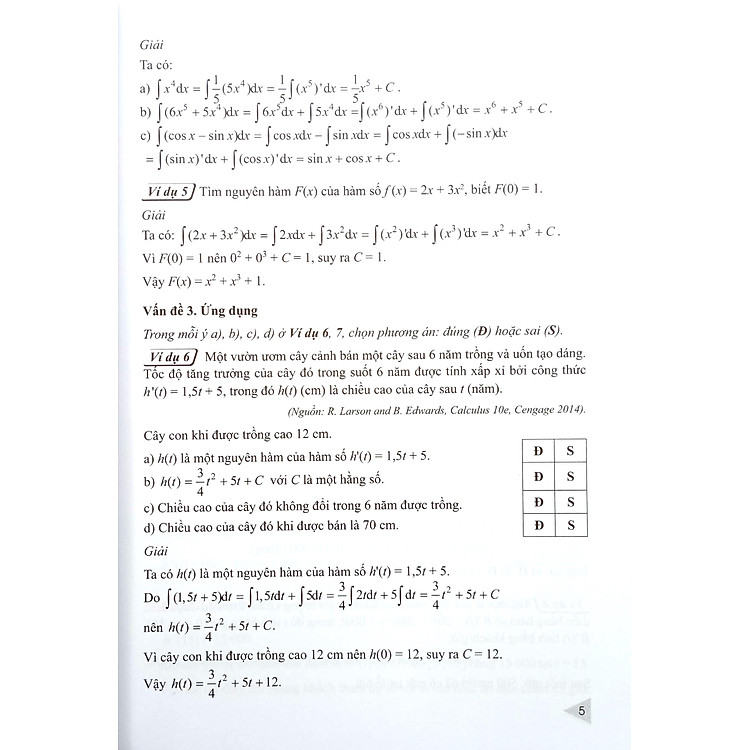 Giải
Ta có:
a) ∫x⁴dx = ∫1/5(5x⁴)dx = 1/5∫(x⁵)'dx = 1/5x⁵ + C .
b) ∫(6x⁵ + 5x⁴)dx = ∫6x⁵dx + ∫5x⁴dx = ∫(x⁶)'dx + ∫(x⁵)'dx = x⁶ + x⁵ + C .
c) ∫(cos x − sin x)dx = ∫cos xdx − ∫sin xdx = ∫cos xdx + ∫(−sin x)dx
= ∫(sin x)'dx + ∫(cos x)'dx = sin x + cos x + C .
Ví dụ 5 Tìm nguyên hàm F(x) của hàm số f (x) = 2x + 3x², biết F(0) = 1.
Giải
Ta có: ∫(2x + 3x²)dx = ∫2xdx + ∫3x²dx = ∫(x²)'dx + ∫(x³)'dx = x² + x³ + C .
Vì F(0) = 1 nên 0² + 0³ + C = 1, suy ra C = 1.
Vậy F(x) = x² + x³ + 1.
Vấn đề 3. Ứng dụng
Trong mỗi ý a), b), c), d) ở Ví dụ 6, 7, chọn phương án: đúng (Đ) hoặc sai (S).
Ví dụ 6 Một vườn ươm cây cảnh bán một cây sau 6 năm trồng và uốn tạo dáng.
Tốc độ tăng trưởng của cây đó trong suốt 6 năm được tính xấp xỉ bởi công thức
h'(t) = 1,5t + 5, trong đó h(t) (cm) là chiều cao của cây sau t (năm).
(Nguồn: R. Larson and B. Edwards, Calculus 10e, Cengage 2014).
Cây con khi được trồng cao 12 cm.
a) h(t) là một nguyên hàm của hàm số h'(t) = 1,5t + 5.
Đ S
b) h(t) = 3/4t² + 5t + C với C là một hằng số.
Đ S
c) Chiều cao của cây đó không đổi trong 6 năm được trồng.
Đ S
d) Chiều cao của cây đó khi được bán là 70 cm.
Đ S
Giải
Ta có h(t) là một nguyên hàm của hàm số h'(t) = 1,5t + 5.
Do ∫(1,5t + 5)dt = ∫1,5tdt + ∫5dt = 3/4∫2tdt + 5∫dt = 3/4t² + 5t + C
nên h(t) = 3/4t² + 5t + C.
Vì cây con khi được trồng cao 12 cm nên h(0) = 12, suy ra C = 12.
Vậy h(t) = 3/4t² + 5t + 12.
5